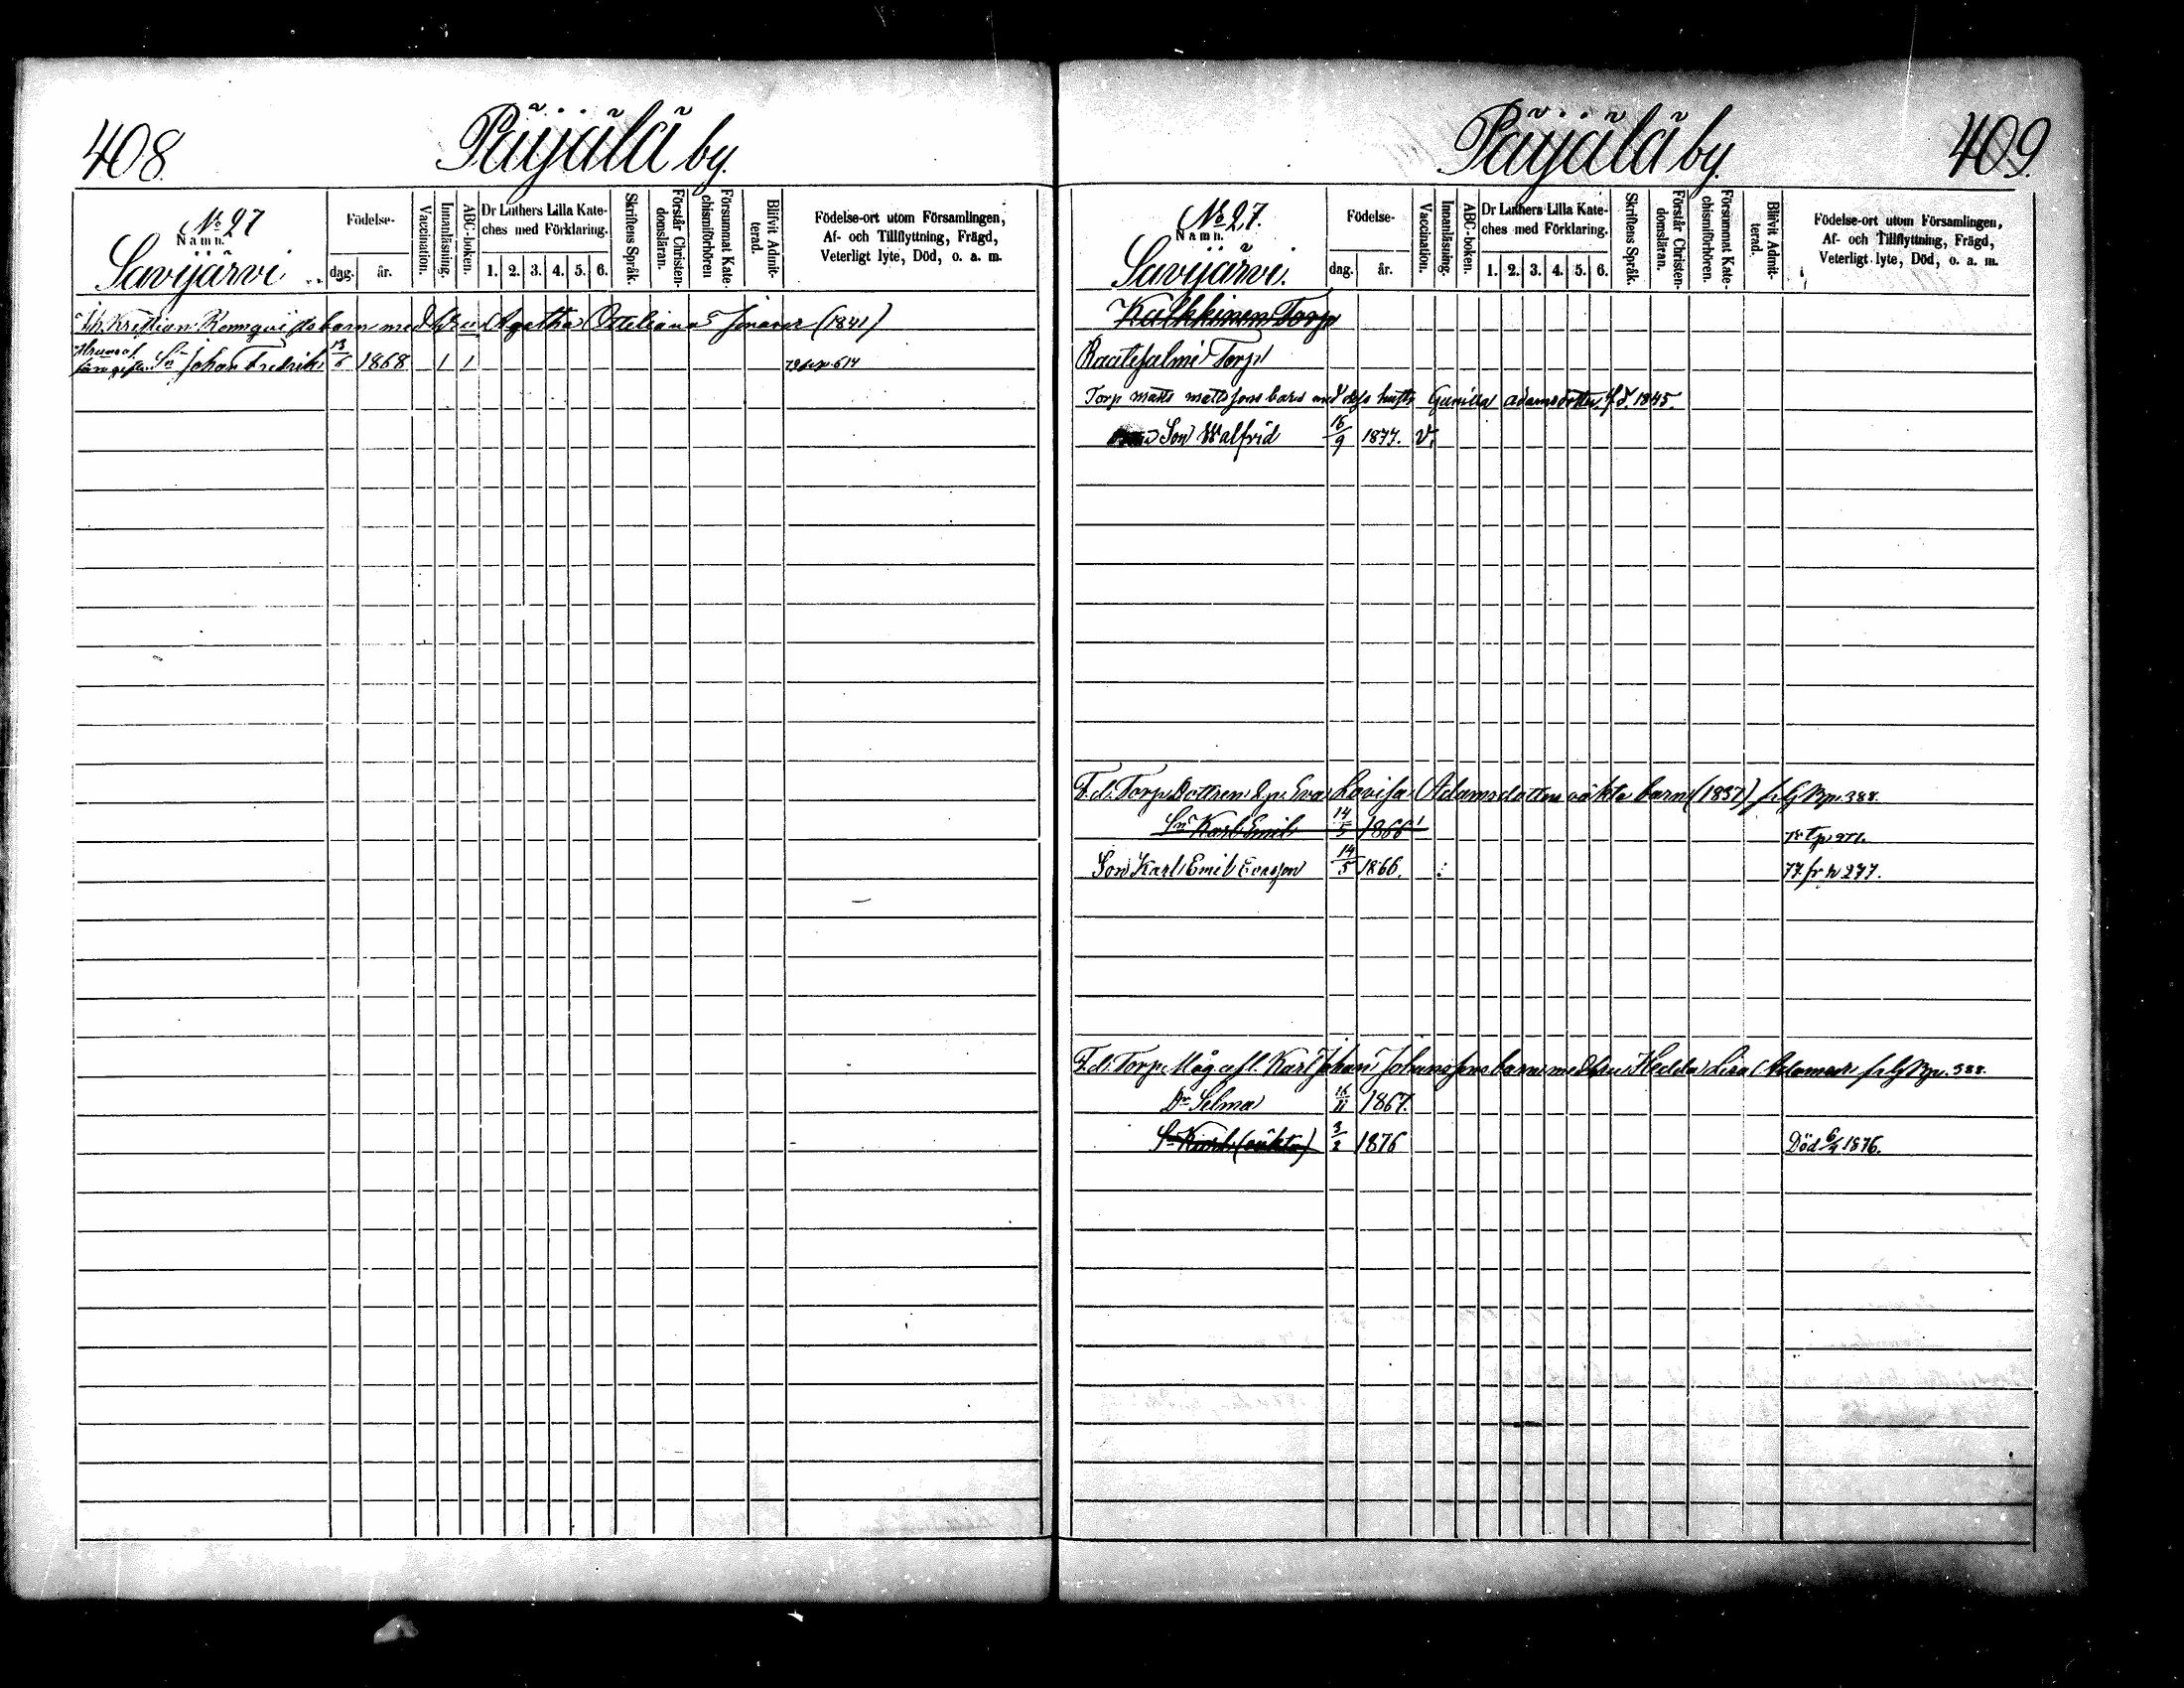 408.
Päijälä by.
No 27
Namn.
Savijärvi
Födelse-
dag. år.
Vaccination.
Innanläsning.
ABC-boken.
Dr Luthers Lilla Kate-
ches med Förklaring.
1. 2. 3. 4. 5. 6.
Skriftens Språk.
Förstår Christen-
domsläran.
Försummat Kate-
chismiförhören
Blifvit Admit-
terad.
Födelse-ort utom Församlingen,
Af- och Tillflyttning, Frägd,
Veterligt lyte, Död, o. a. m.
Kristian Rennqvists barn med Agatha (1841)
Sn Johan Fredrik 13/6 1868 1 1 614
Päijälä by.
409.
No 27.
Namn.
Savijärvi.
Födelse-
dag. år.
Vaccination.
Innanläsning.
ABC-boken.
Dr Luthers Lilla Kate-
ches med Förklaring.
1. 2. 3. 4. 5. 6.
Skriftens Språk.
Förstår Christen-
domsläran.
Försummat Kate-
chismiförhören.
Blifvit Admit-
terad.
Födelse-ort utom Församlingen,
Af- och Tillflyttning, Frägd,
Veterligt lyte, Död, o. a. m.
Kalkkinen Torp
Raatesalmi Torp
Torp matts mattssons barn med dess hustr Gunilla adamsdotter f.d. 1845.
Son Walfrid 16/9 1877. v.
F.d. Torp. Dottren Eva Lovisa Adamsdotters oäkta barn (1837) 388.
Sn Karl Emil 14/5 1866 1
Son Karl Emil Evasson 14/5 1866. 77. fr 277.
F.d. Torp. Måg afl. Karl Johan Johanssons barn med Hedda Lisa 388.
Dr Selma 16/11 1867.
Sn Karl (oäkta) 3/2 1876 Död 6/4 1876.